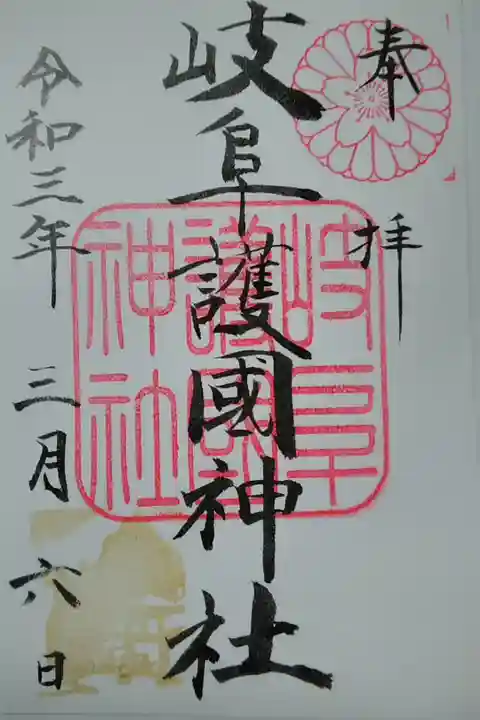 奉拝
岐阜護國神社
岐阜護國神社
令和三年三月六日